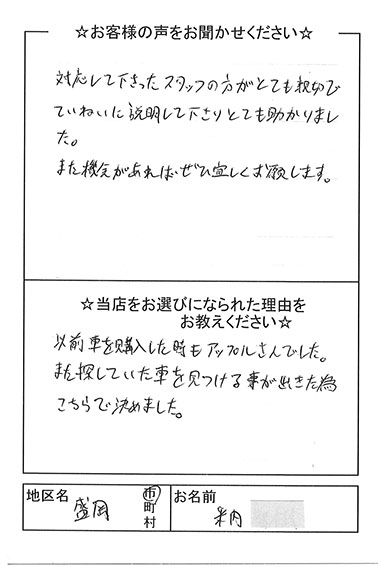 ☆お客様の声をお聞かせください☆
対応して下さったスタッフの方がとても親切で
ていねいに説明して下さりとても助かりまし
た。
また機会があれば、ぜひ宜しくお願します。
☆当店をお選びになられた理由を
お教えください☆
以前車を購入した時もアップルさんでした。
また探していた車を見つける事が出きた為
こちらで決めました。
地区名
盛岡
市
町
村
お名前